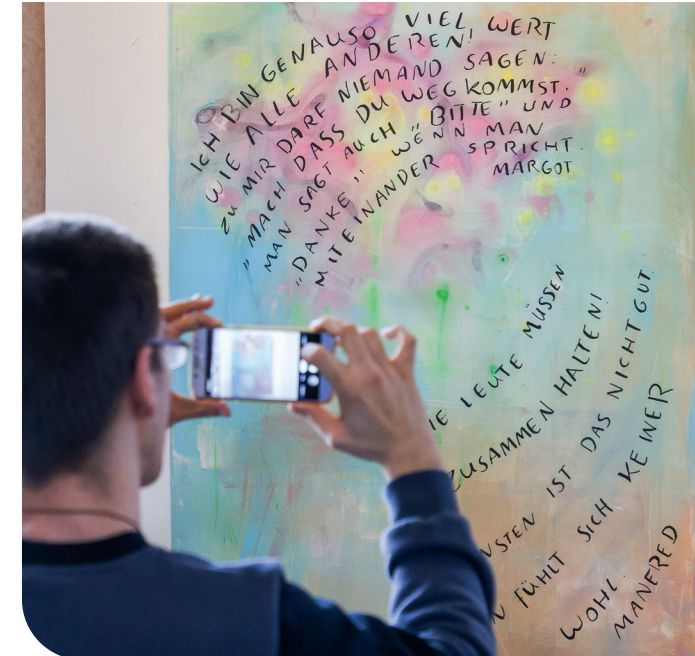 ICH BIN GENAUSO VIEL WERT
WIE ALLE ANDEREN!
ZU MIR DARF NIEMAND SAGEN:
„MACH DASS DU WEGKOMMST."
MAN SAGT AUCH „BITTE" UND
„DANKE", WENN MAN
MITEINANDER SPRICHT.
MARGOT
IE LEUTE MÜSSEN
ZUSAMMEN HALTEN!
NSTEN IST DAS NICHT GUT.
N FÜHLT SICH KEINER
WOHL.
MANFRED